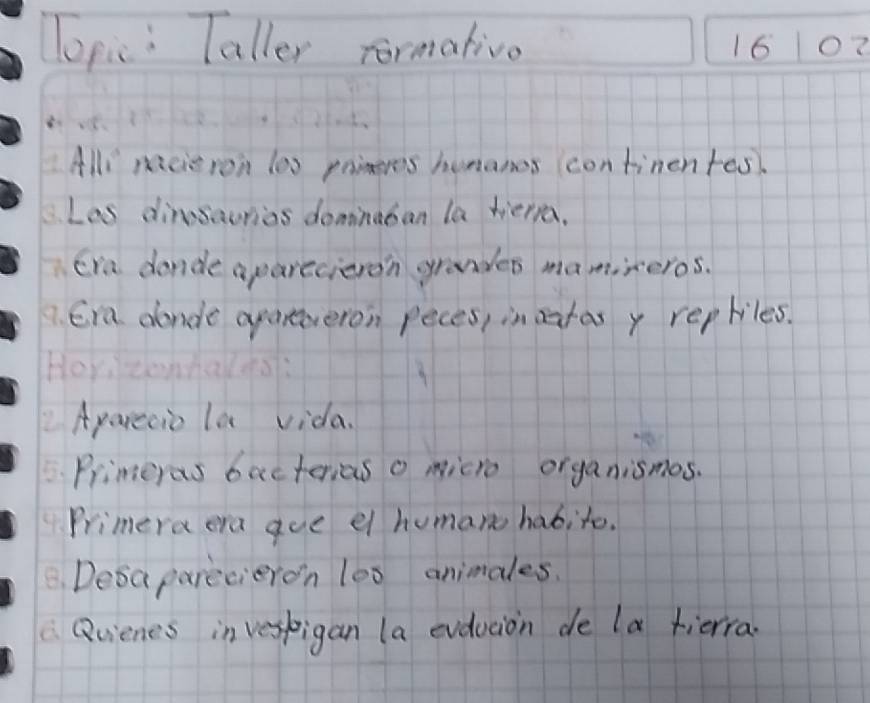 Topic: Taller formativo 16 | 02
1 Allí nacieron los primeros humanos (continentes).
3. Los dinosaurios dominaban la tierra.
7. Era donde aparecierón grandes mamiferos.
9. Era donde aparecieron peces, insectos y reptiles.
Horizontales:
2 Aparecio la vida.
5. Primeras bacterias o micro organismos.
4. Primera era que el humano habito.
8. Desaparecierón los animales.
6 Quienes investigan la evolución de la tierra.